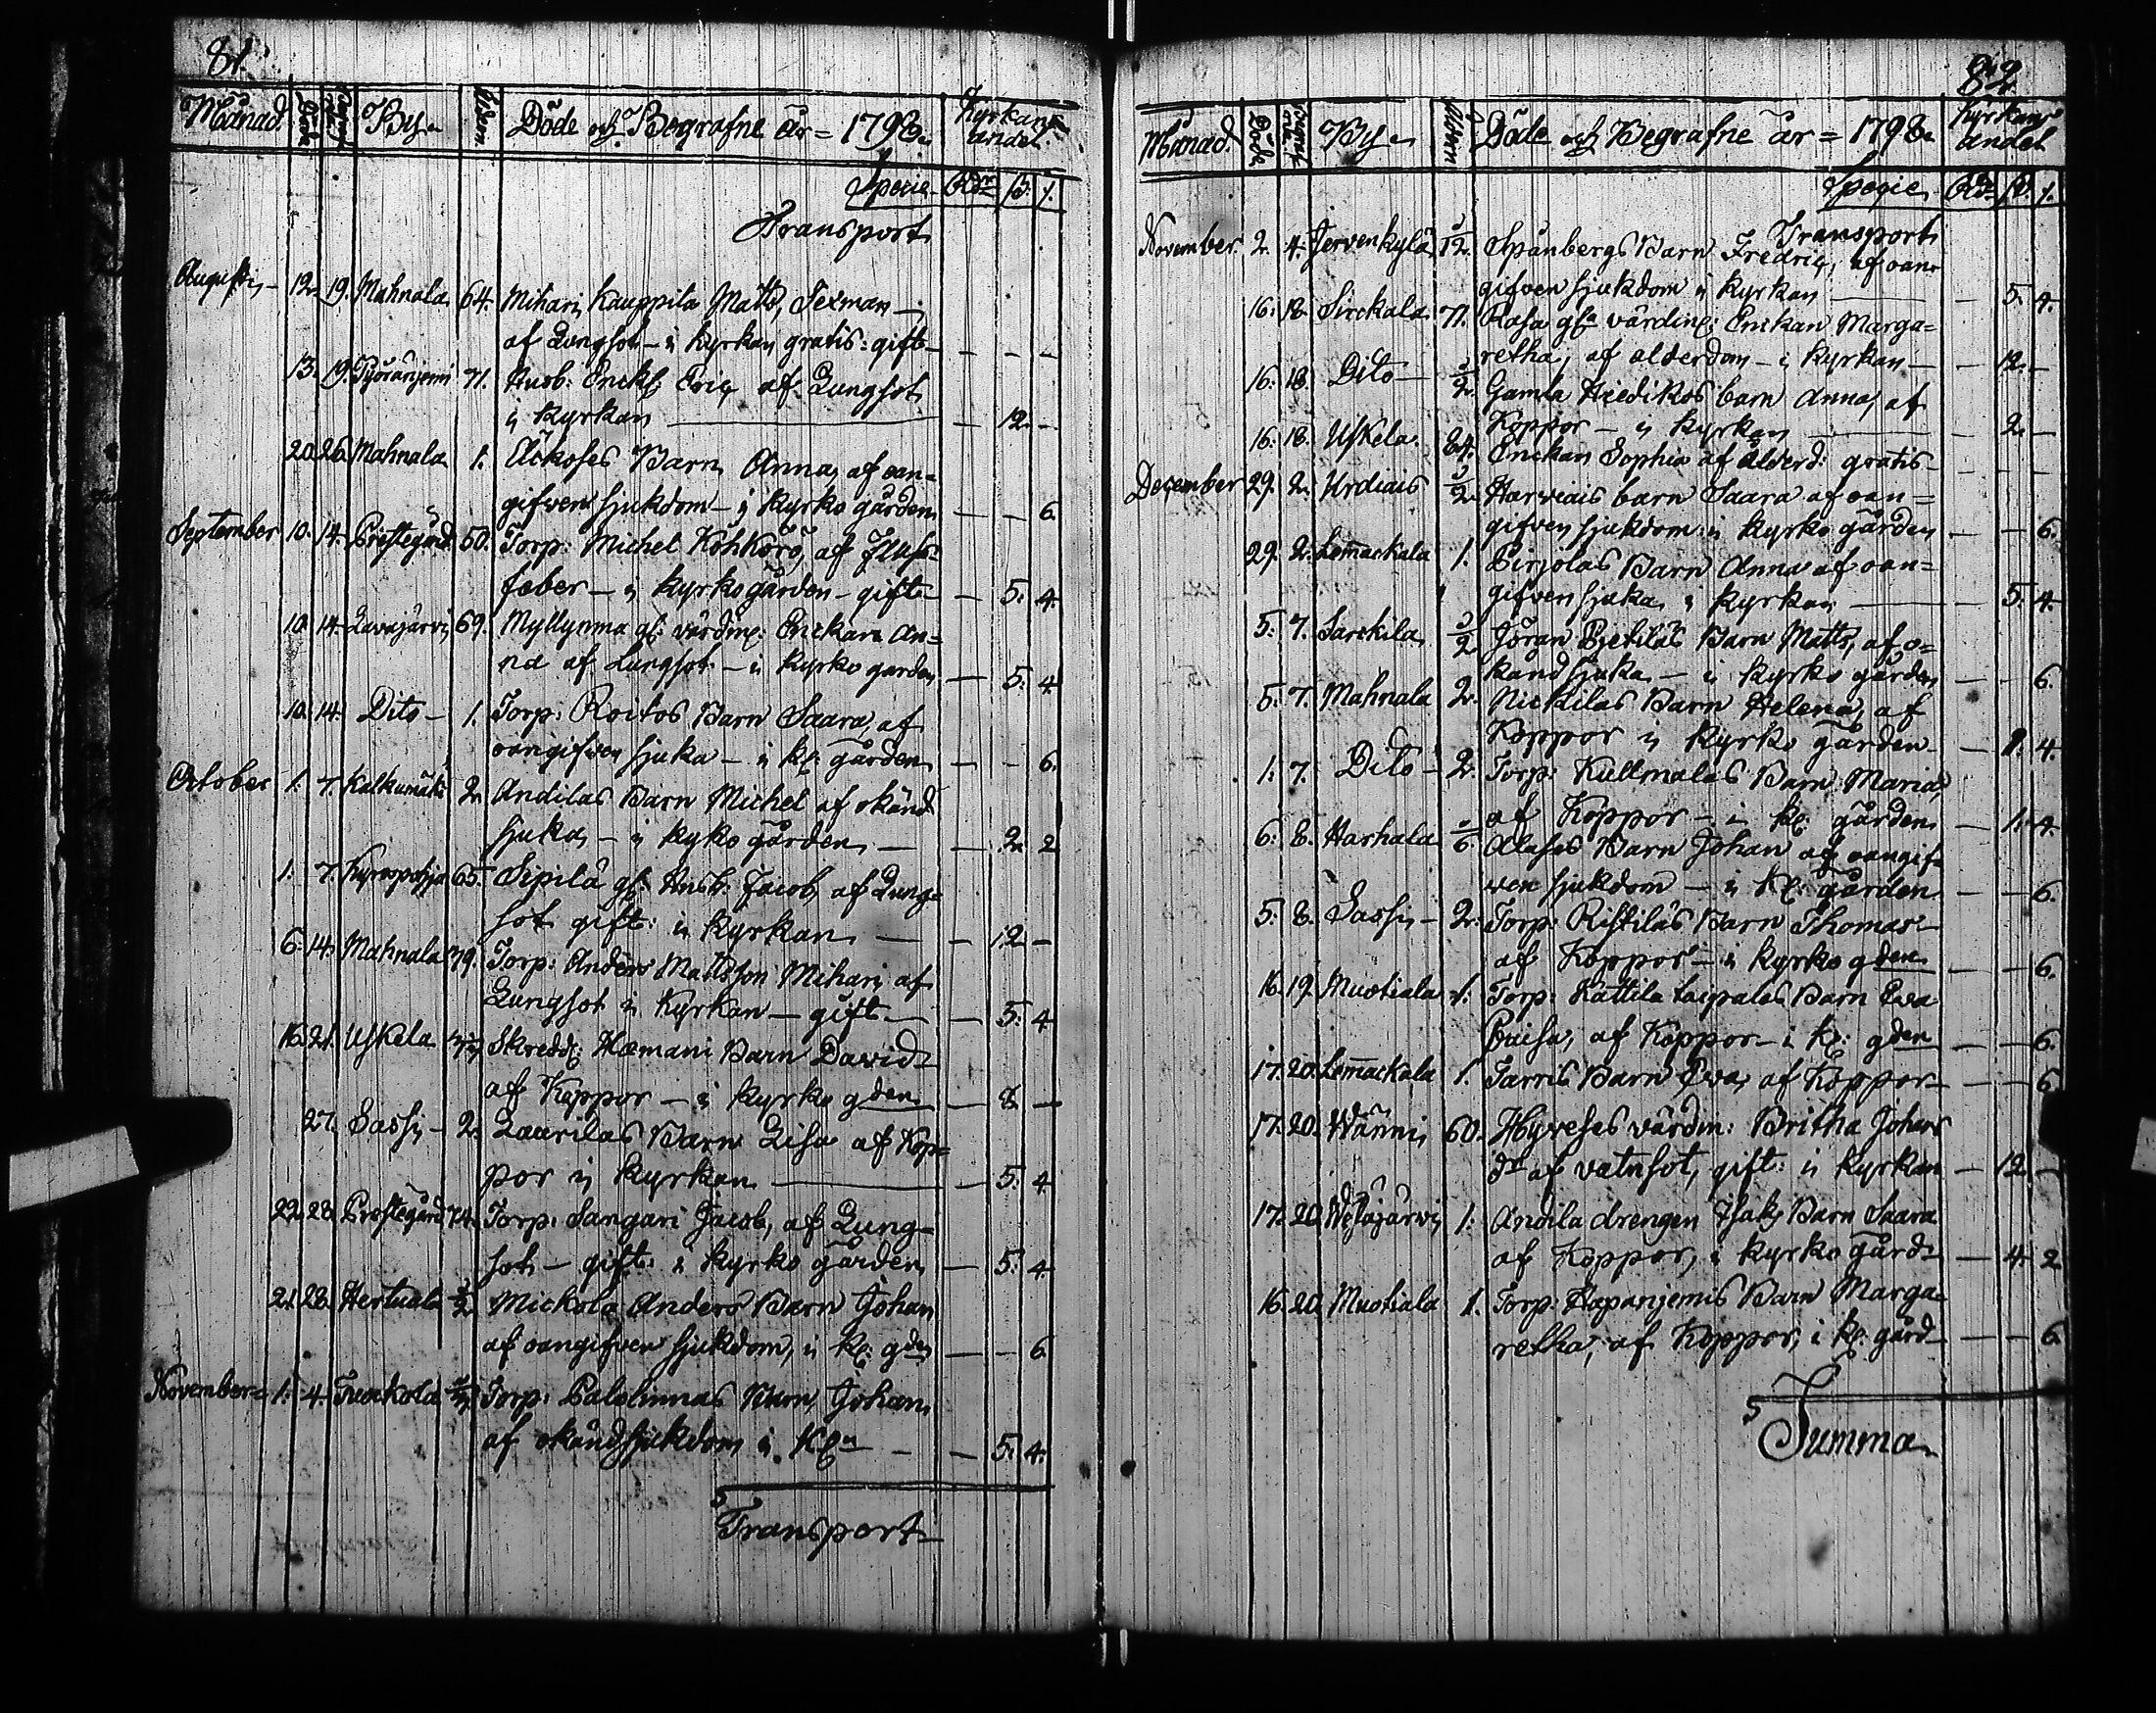 81.
Månad. Döde By. Åldern Döde och Begrafne år = 1798. Kyrkans andel.
Specie Rdr ß. r.
Transport
Augusti 12. 19. Mahnala 64. Mihari Kauppila Matts, Texman
af Lungsot - i kyrkan gratis: gift - - -
13. 19. Pyöräniemi 71. Husb: Enckl: Eric af Lungsot
i kyrkan - 12. -
20. 26. Mahnala 1. Äckoses Barn Anna, af oan=
gifven sjukdom - i kyrko gården - - 6.
September 10. 14. Prestegård 50. Torp: Michel Kohkörö, af
feber - i kyrkogården - gift - 5. 4.
10. 14. Lavajärvi 69. Myllynma gl: värdin: Enckan An=
na af Lungsot - i kyrko garden - 5. 4
10. 14. Dito - 1. Torp: Roitos Barn Saara, af
oangifven sjuka - i k: gården - - 6.
October 1. 7. Kalkumäki 2. Andilas Barn Michel af okänd
sjuka - i kyko gården - 2. 2
1. 7. Kyrospohja 65. Sipilä gl: Husb: Jacob, af Lung=
sot gift: i kyrkan - 12 -
6. 14. Mahnala 79. Torp: Anders Mattsson Mihari af
Lungsot i Kyrkan - gift - 5. 4
16. 21. Uskela Skredd: Hæmani Barn David
af Koppor - i kyrko gden - 8 -
27. Sassi - 2. Laurilas Barn Lisa af Kop=
por i kyrkan - 5. 4
22. 28. Prestegård 74. Torp: Sangari Jacob, af Lung=
sot - gift: i kyrko gården - 5. 4.
21. 28. Hertuala 3/2 Mickola Anders Barn Johan
af oangifven sjukdom, i k: gden - - 6
November 1. 4. Torp: Palolinnas Barn, Johan
af okänd sjukdom i K:n - 5. 4.
Transport
82.
Månad. Döde By. Ålderen Döde och Begrafne år = 1798. Kyrkans Andel
Specie Rdr ß. r.
Transport
November. 2. 4. Jervenkylä 3/12 Spånbergs Barn Fredric, af oan=
gifven sjukdom i kyrkan - 5. 4.
16. 18. Sirckala 71. Rasa gla värdin: Enckan Marga=
retha, af alderdom - i kyrkan - 12. -
16. 18. Dito - 3/2 Gamla Hiedikos barn Anna, af
Koppor - i kyrkan - 2. -
16. 18. Uskela 84. Enckan Sophia af Ålderd: gratis - - -
December 29. 2. Urdiais 3/2 Harviais barn Saara af oan=
gifven sjukdom: i kyrko gården - - 6.
29. 2. Lemackala 1. Pirjolas Barn Anna af oan=
gifven sjuka i kyrkan - 5. 4.
5. 7. Sarckila 3/2 Jöran Pjetiläs Barn Matts, af o=
känd sjuka - i kyrko gården - - 6.
5. 7. Mahnala 2. Nickilas Barn Helena, af
Koppor i kyrko gården - 1. 4.
1. 7. Dito - 2. Torp: Kullmalas Barn Maria,
af Koppor - i k: gården - 1. 4.
6. 8. Harhala 3/6 Alases Barn Johan af oangif=
ven sjukdom - i k: gården - - 6.
5. 8. Sassi - 2. Torp: Ristiläs Barn Thomas
af Koppor - i kyrko gden - - 6.
16. 19. Muotiala 1. Torp: Kättila taipalas Barn Eva
Caisa, af Koppor - i k: gden - - 6.
17. 20. Lemackala 1. Tarris Barn Eva, af Koppor - - 6
17. 20. Wänni 60. Hyreses värdin: Britha Johans
dr af vatnsot, gift: i kyrkan - 12. -
17. 20. Welajärvi 1. Andila drengen Isaks Barn Saara
af Koppor, i kyrko gård - 4. 2
16. 20. Muotiala 1. Torp: Hapaniemis Barn Marga=
retha, af Koppor, i k: gård - - 6.
Summa